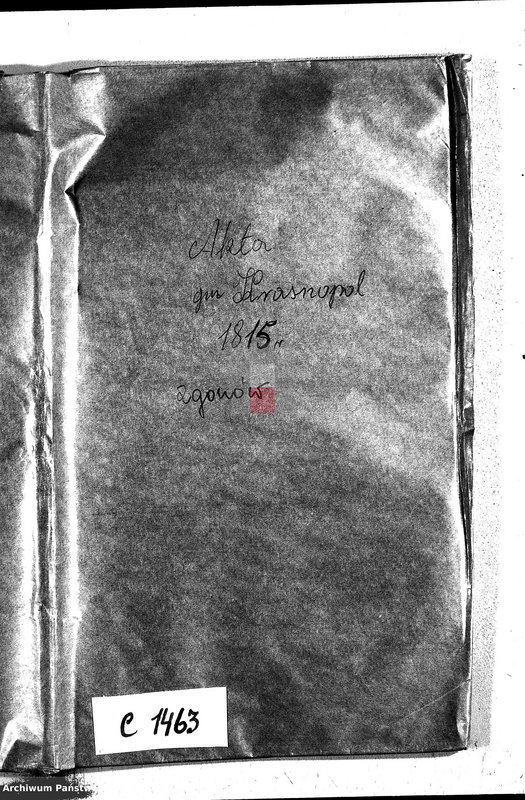 Akta
gm Krasnopol
1815„
zgonów
C 1463
Archiwum Państw